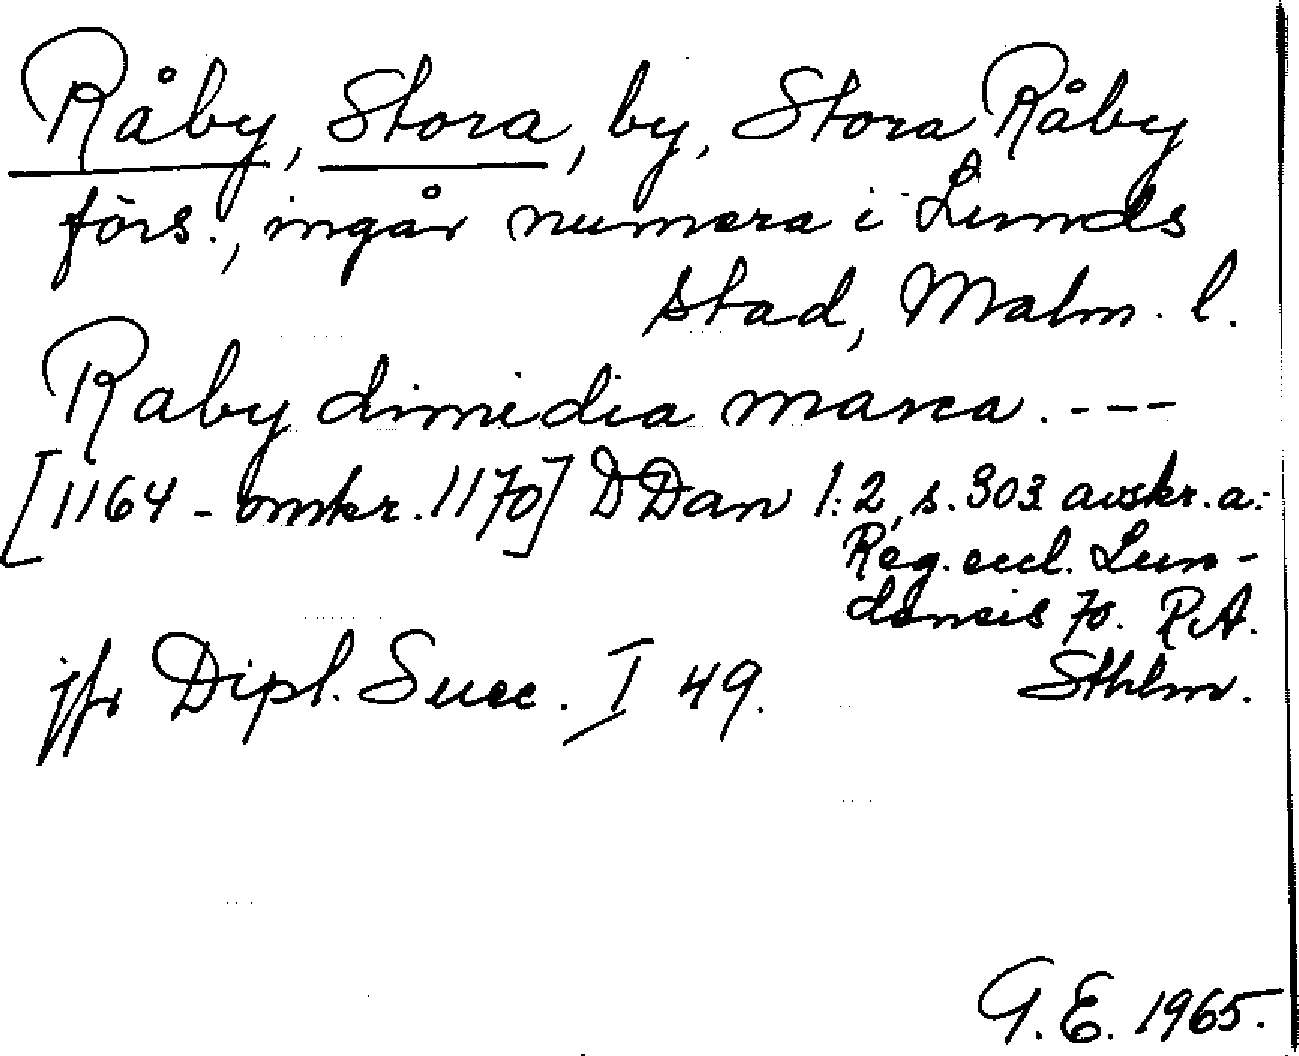 Råby, Stora, by, Stora Råby
förs., ingår numera i Lunds
stad, Malm. l.
Raby dimidia marca. ---
[1164 - omkr. 1170] DDan 1:2, s. 303 avskr. a:
Reg. eccl. Lun-
densis 70. RA.
Sthlm.
jfr Dipl. Suec. I 49.
G.E. 1965.